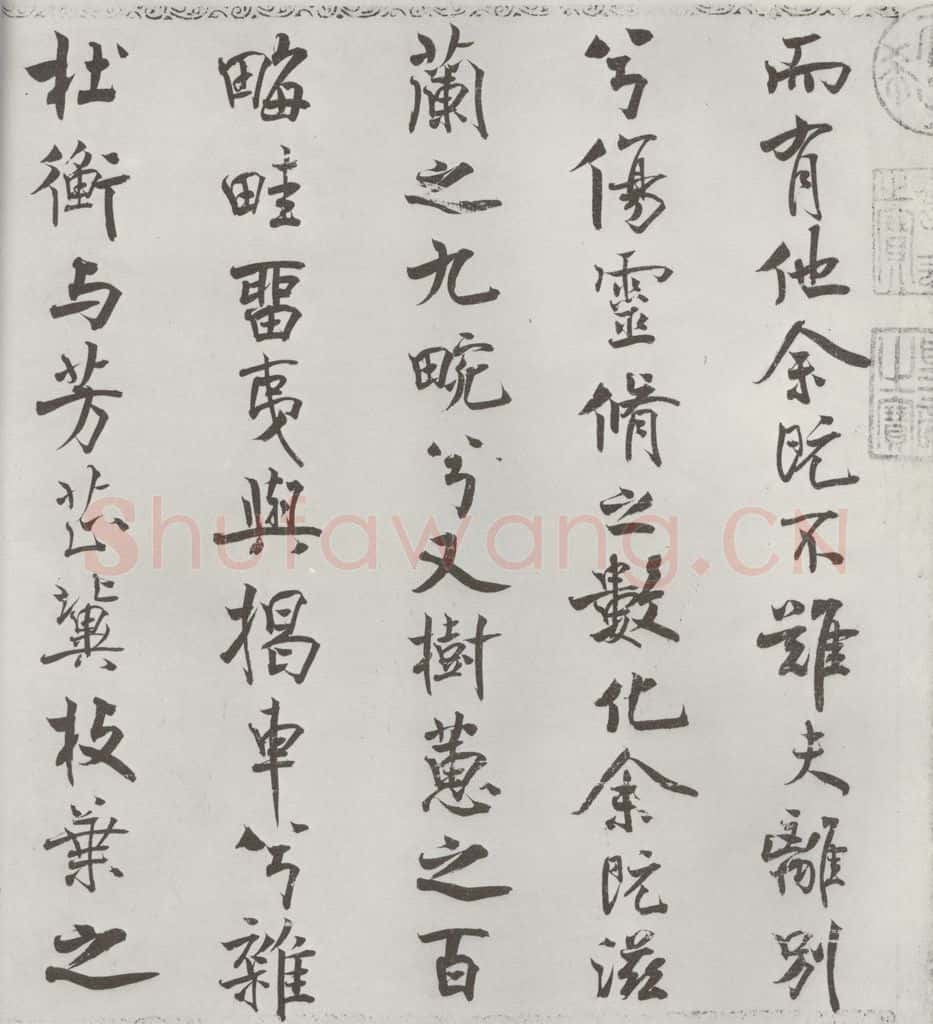 而有他余既不難夫離別
兮傷靈脩之數化余既滋
蘭之九畹兮又樹蕙之百
畮畦畱夷與揭車兮雜
杜衡与芳芷冀枝葉之
之寶
之寶
Shufawang.CN